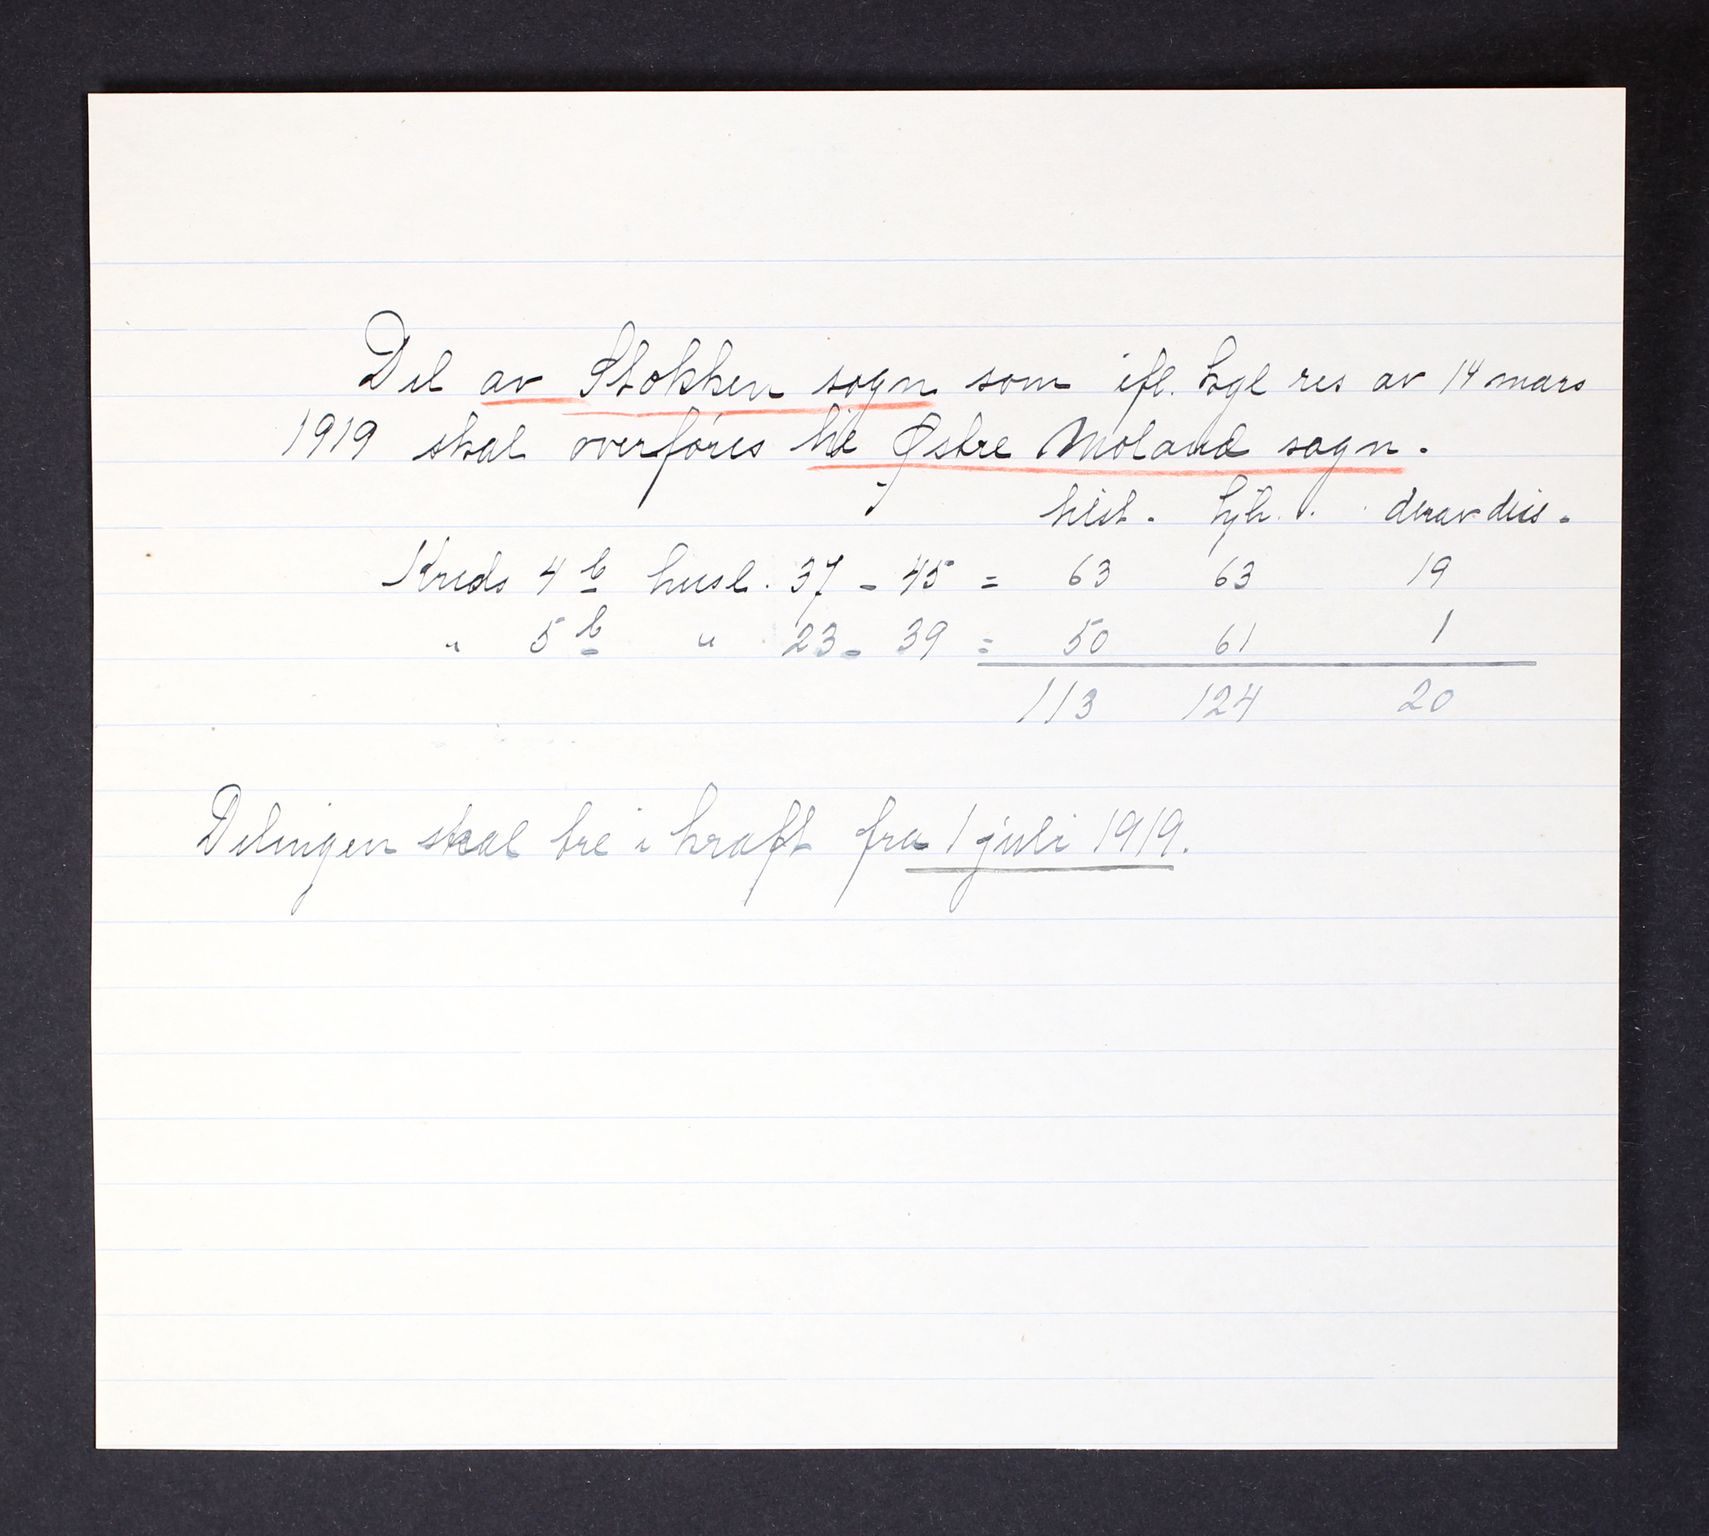 Del av Stokken sogn som ifl. kgl res av 14 mars
1919 skal overføres til Østre Moland sogn.
tilst. hjh. derav diss.
Kreds 4 b husl. 37 - 45 = 63 63 19
" 5 b " 23 - 39 = 50 61 1
113 124 20
Delingen skal tre i kraft fra 1 juli 1919.